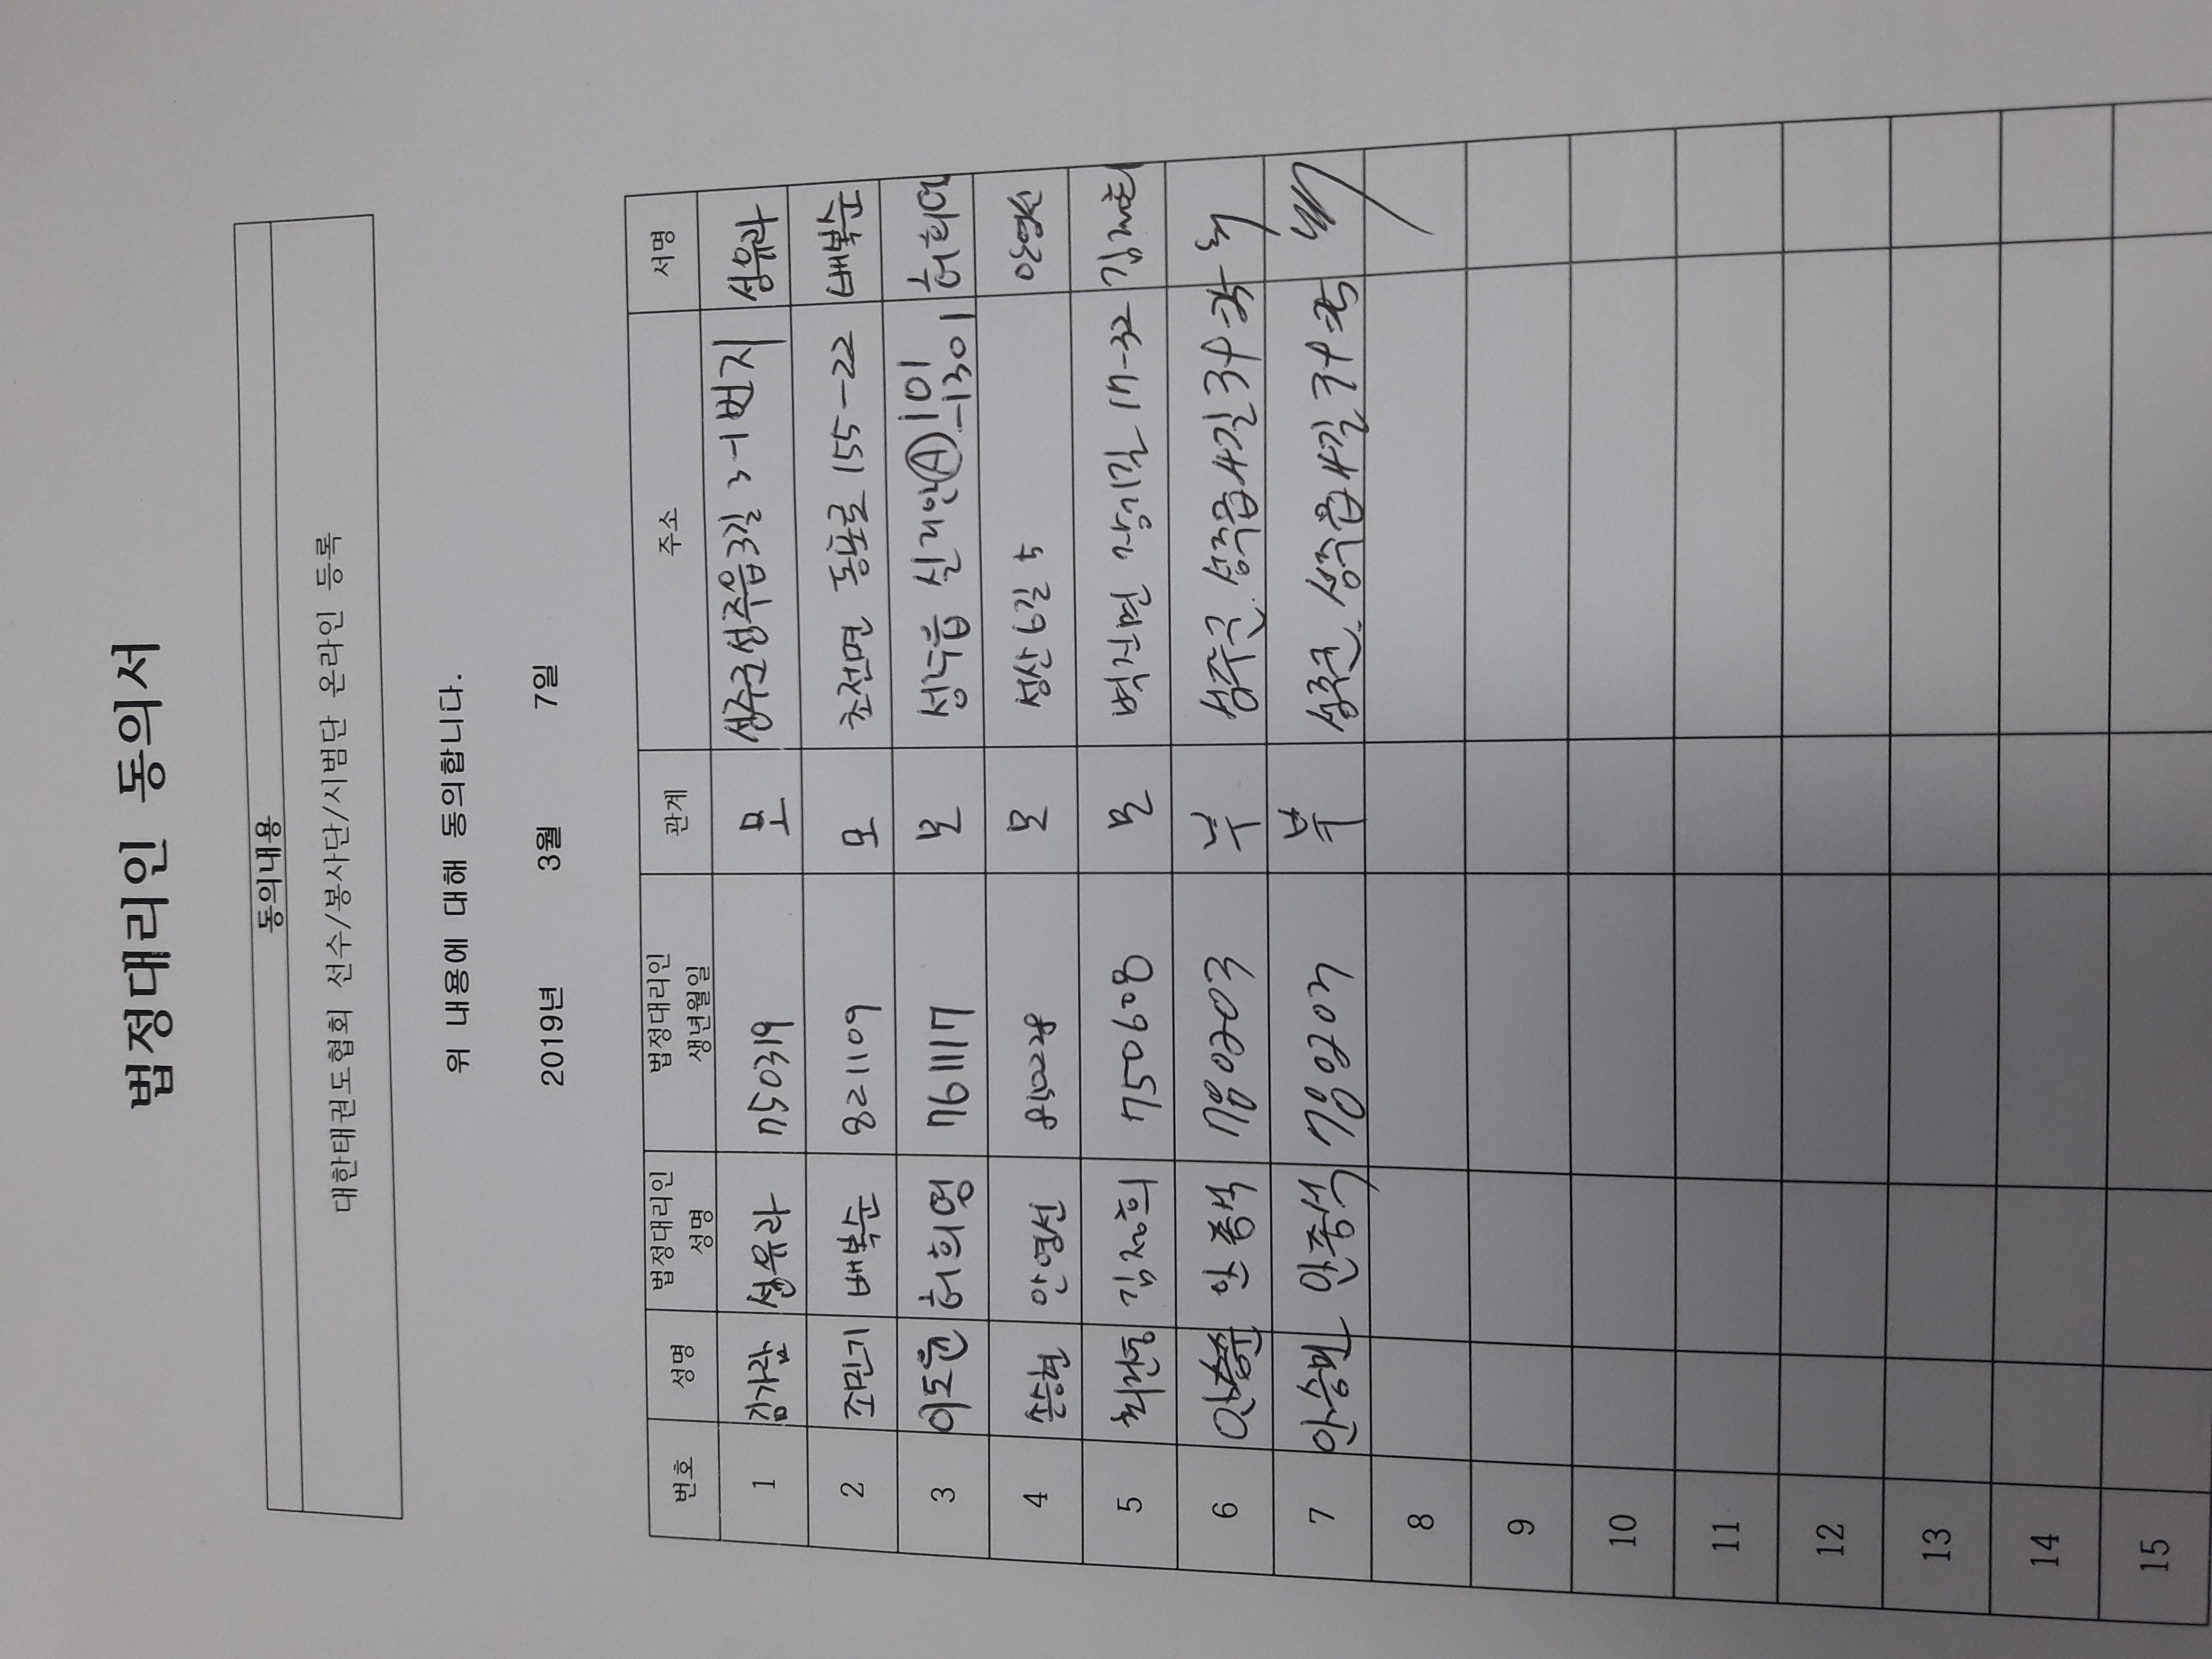 법정대리인 동의서
동의내용
대한태권도협회 선수/봉사단/시범단 온라인 등록
위 내용에 대해 동의합니다.
2019년 3월 7일
번호 성명 법정대리인 성명 법정대리인 생년월일 관계 주소 서명
1 김가람 성유라 750319 모 성주군 성주읍3길 3-1번지 성유라
2 조민기 배복순 821109 모 초전면 동포로 155-22 배복순
3 이도훈 허희영 761117 모 성주읍 실개안 Ⓐ 101-1301 허희영
4 안영선 850228 모 성산6길 안영선
5 김정희 750608 모 벽진면 17-32
6 안종혁 부 성주군 성주읍4길
7 안종혁 부 성주군 성주읍4길
8
9
10
11
12
13
14
15